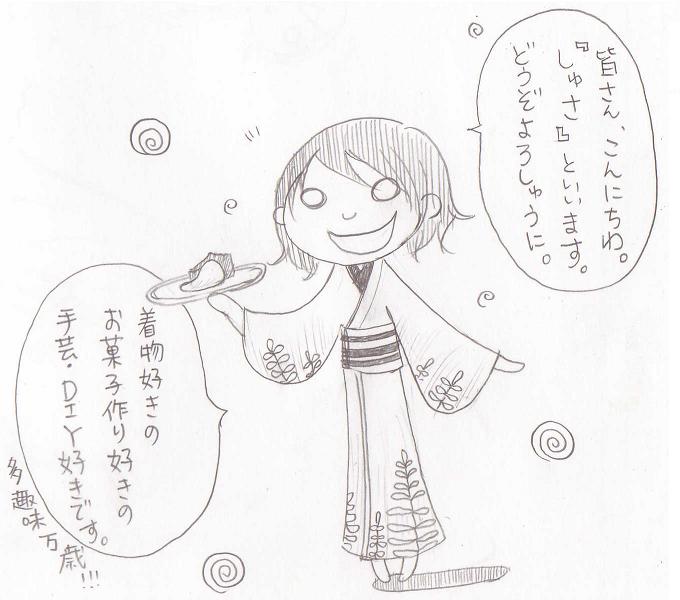 皆さん、こんにちわ。
『しゅさ』といいます。
どうぞよろしゅうに。
着物好きの
お菓子作り好きの
手芸・DIY好きです。
多趣味万歳!!!